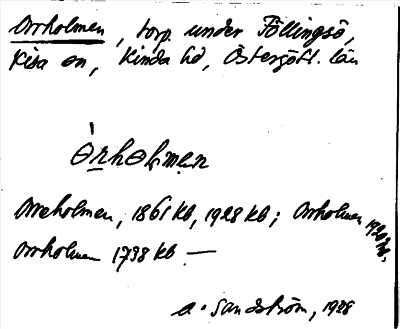 Orrholmen, torp under Föllingsö,
Kisa sn, Kinda hd, Östergötl. län
òrhol·mən
Orreholmen, 1861 kb, 1928 kb; Orrholmen 1920 kb,
Orrholmen 1798 kb. —
A. Sandström, 1928